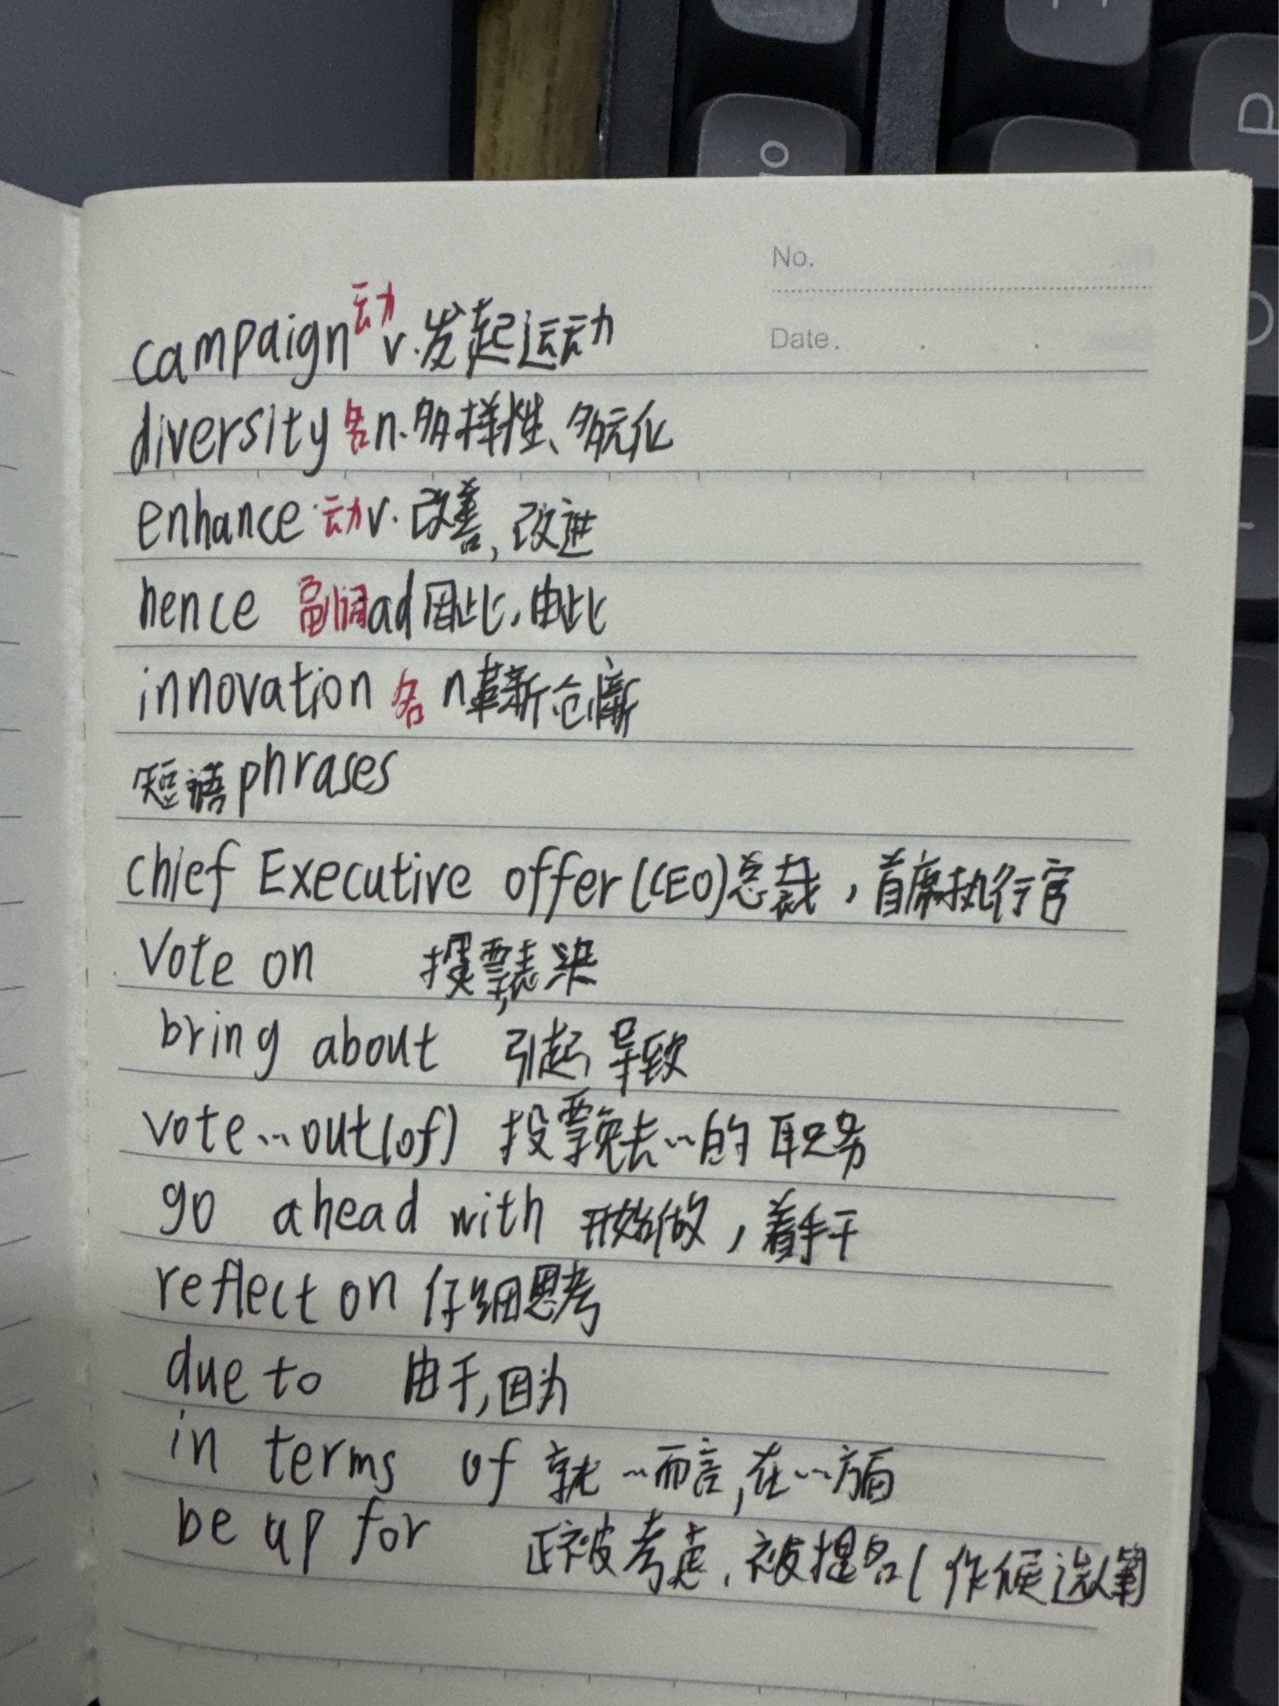 No.
Date.
campaign 动 v.发起运动
diversity 名n.多样性、多元化
enhance 动v.改善,改进
hence 副词ad因此,由此
innovation 名 n革新
短语phrases
chief Executive offer(CEO)总裁,首席执行官
Vote on 投票表决
bring about 引起,导致
vote…out(of) 投票免去…的职务
go ahead with 开始做,着手干
reflect on 仔细思考
due to 由于,因为
in terms of 就…而言,在…方面
be up for 正被考虑,被提名(作候选人
P